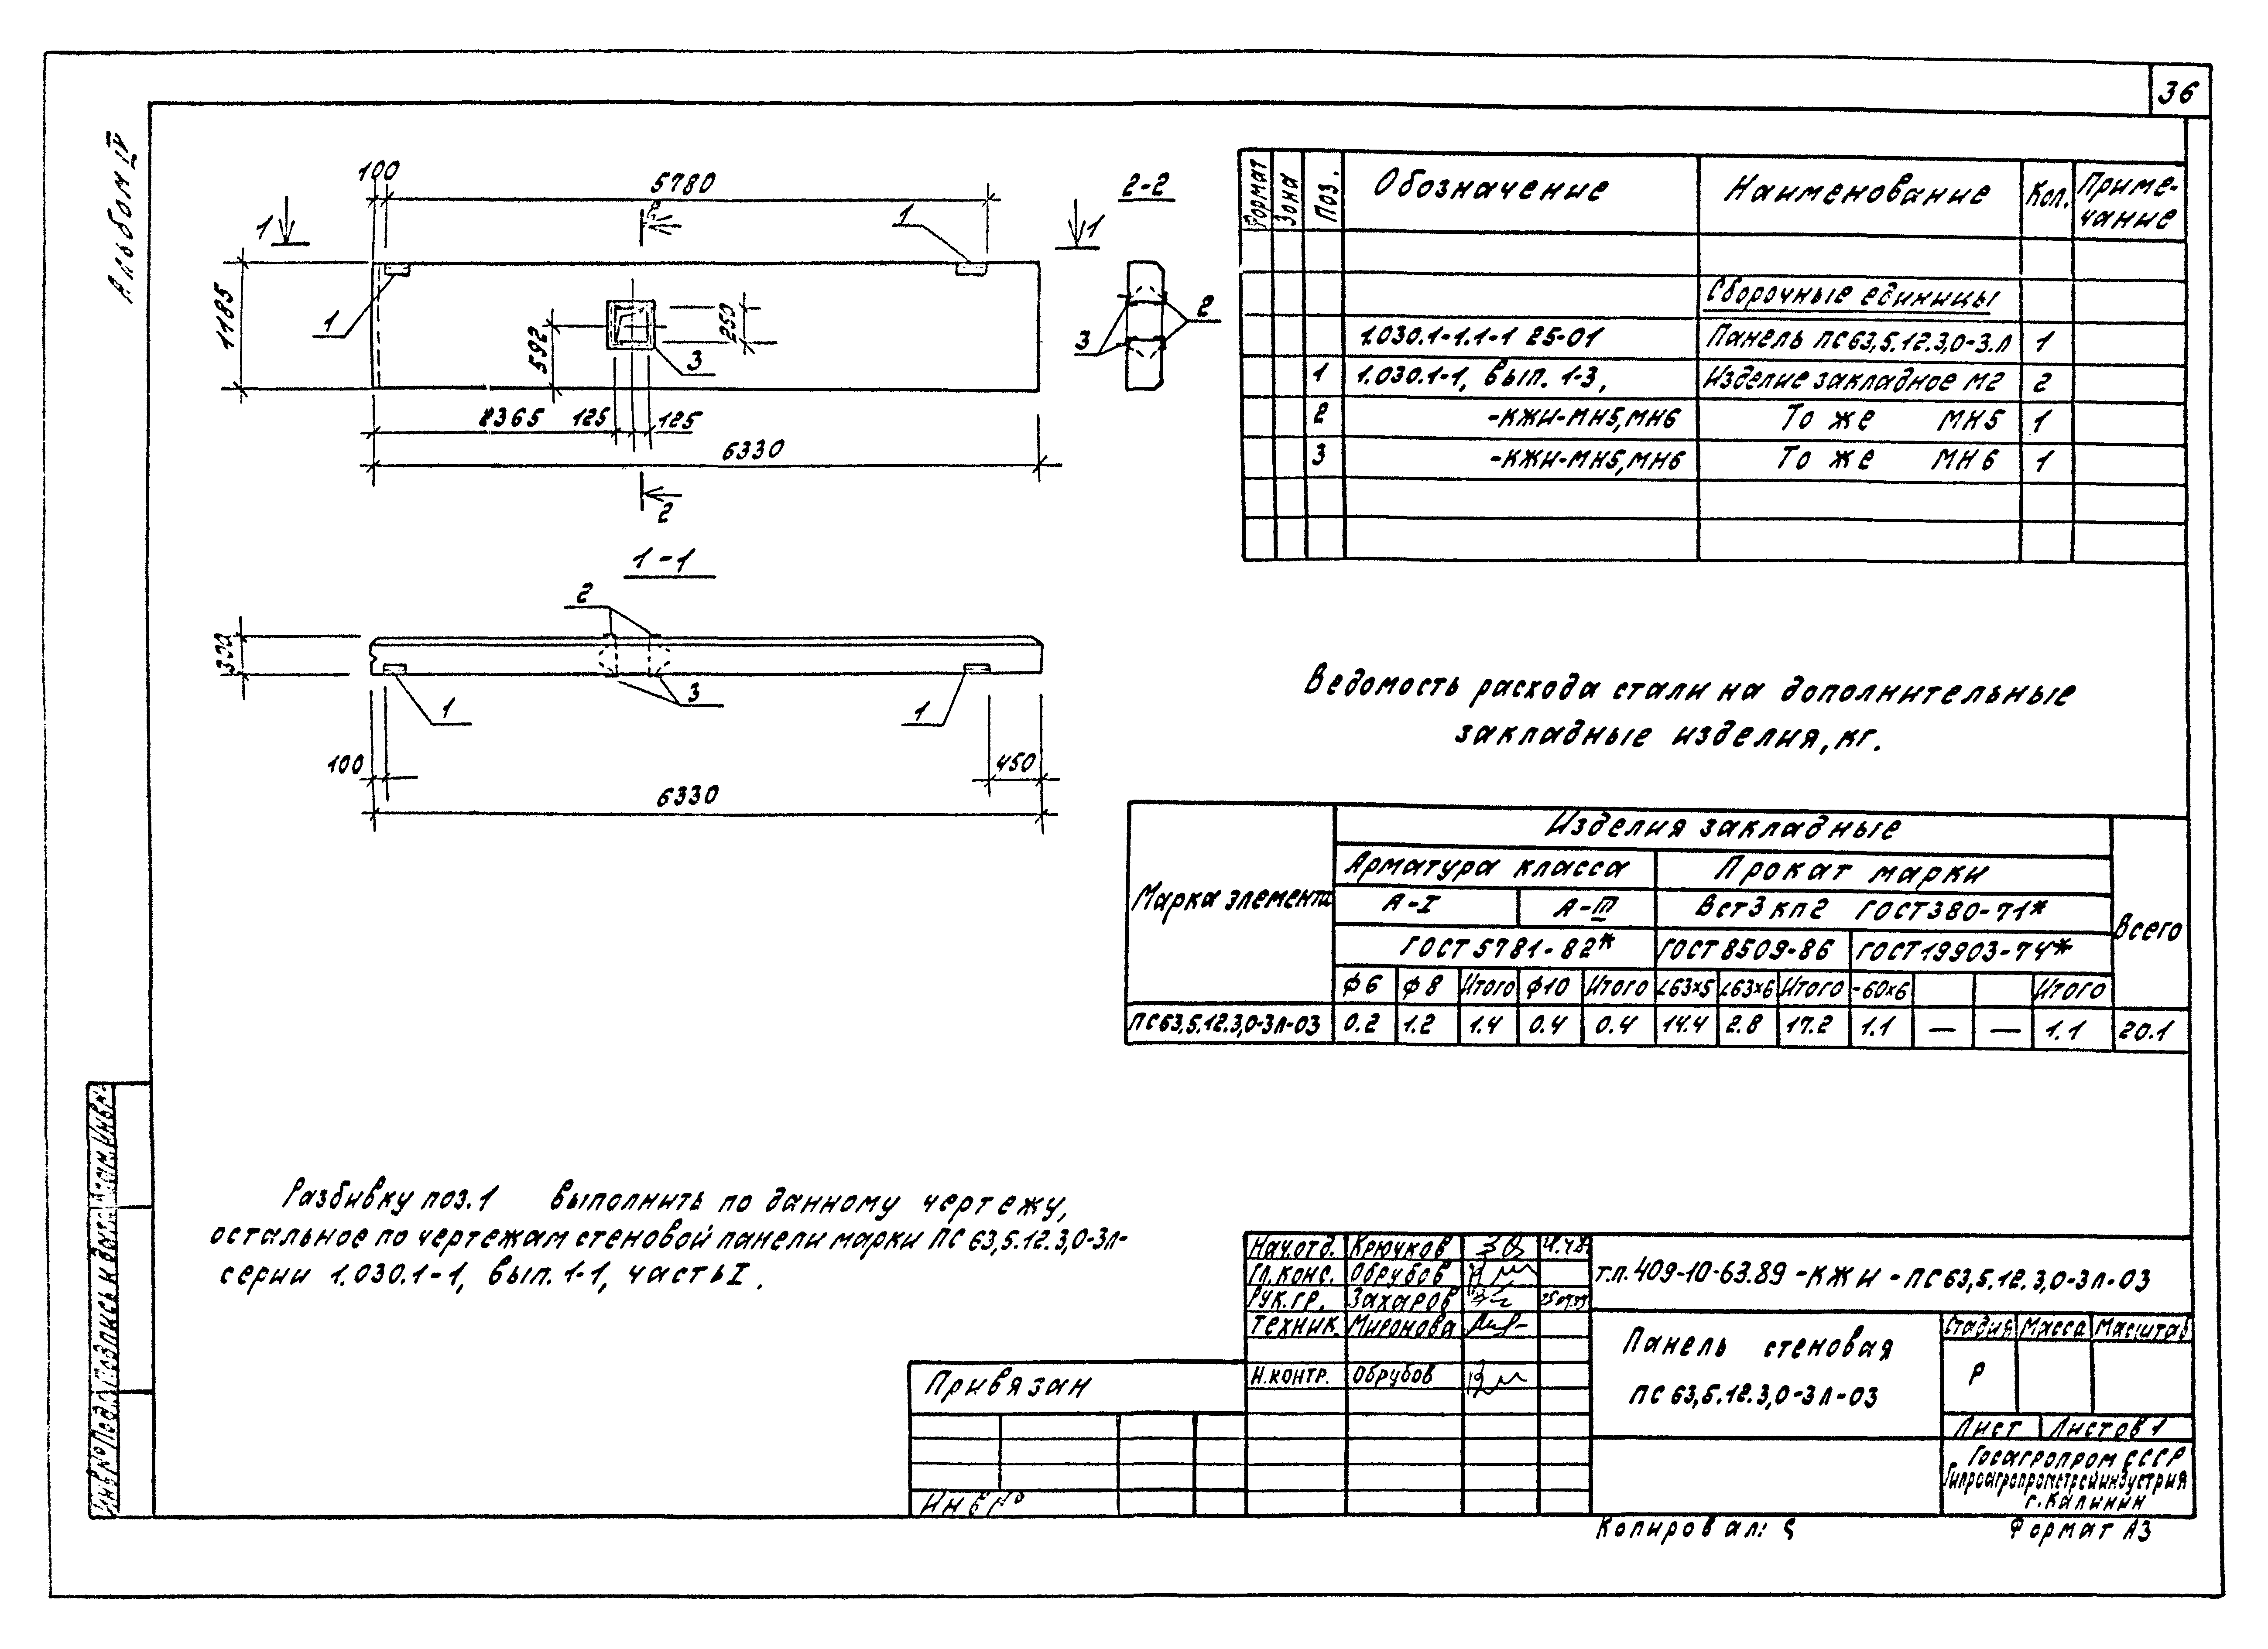 36
Альбом IV
100
5780
2-2
1
2
1
1
1
1185
592
250
3
3
2
2365 125 125
6330
2
1-1
2
300
3
1
1
100
450
6330
Формат Зона Поз. Обозначение Наименование Кол. Приме-
чание
Сборочные единицы
1.030.1-1.1-1 25-01 Панель ПС63,5.12.3,0-3.Л 1
1 1.030.1-1, вып. 1-3, Изделие закладное М2 2
2 -КЖИ-МН5,МН6 То же МН5 1
3 -КЖИ-МН5,МН6 То же МН6 1
Ведомость расхода стали на дополнительные
закладные изделия, кг.
Марка элемента Изделия закладные Всего
Арматура класса Прокат марки
А-I А-III Вст3кп2 ГОСТ380-71*
ГОСТ 5781-82* ГОСТ 8509-86 ГОСТ19903-74*
ф6 ф8 Итого ф10 Итого L63×5 L63×6 Итого -60×6 Итого
ПС63,5.12.3,0-3Л-03 0.2 1.2 1.4 0.4 0.4 14.4 2.8 17.2 1.1 — — 1.1 20.1
Разбивку поз.1 выполнить по данному чертежу,
остальное по чертежам стеновой панели марки ПС 63,5.12.3,0-3Л-
серии 1.030.1-1, вып. 1-1, часть I.
Инв.№ подл. Подпись и дата Взам. инв.№
Нач.отд. Крючков
Гл.конс. Обрубов
Рук.гр. Захаров
Техник. Миронова
Н.контр. Обрубов
т.п. 409-10-63.89 -КЖИ - ПС63,5.12.3,0-3Л-03
Панель стеновая
ПС 63,5.12.3,0-3Л-03
Стадия Масса Масштаб
Р
Лист Листов 1
Госагропром СССР
Гипроагропромстройиндустрия
г. Калинин
Привязан
Инв №
Копировал:
Формат А3